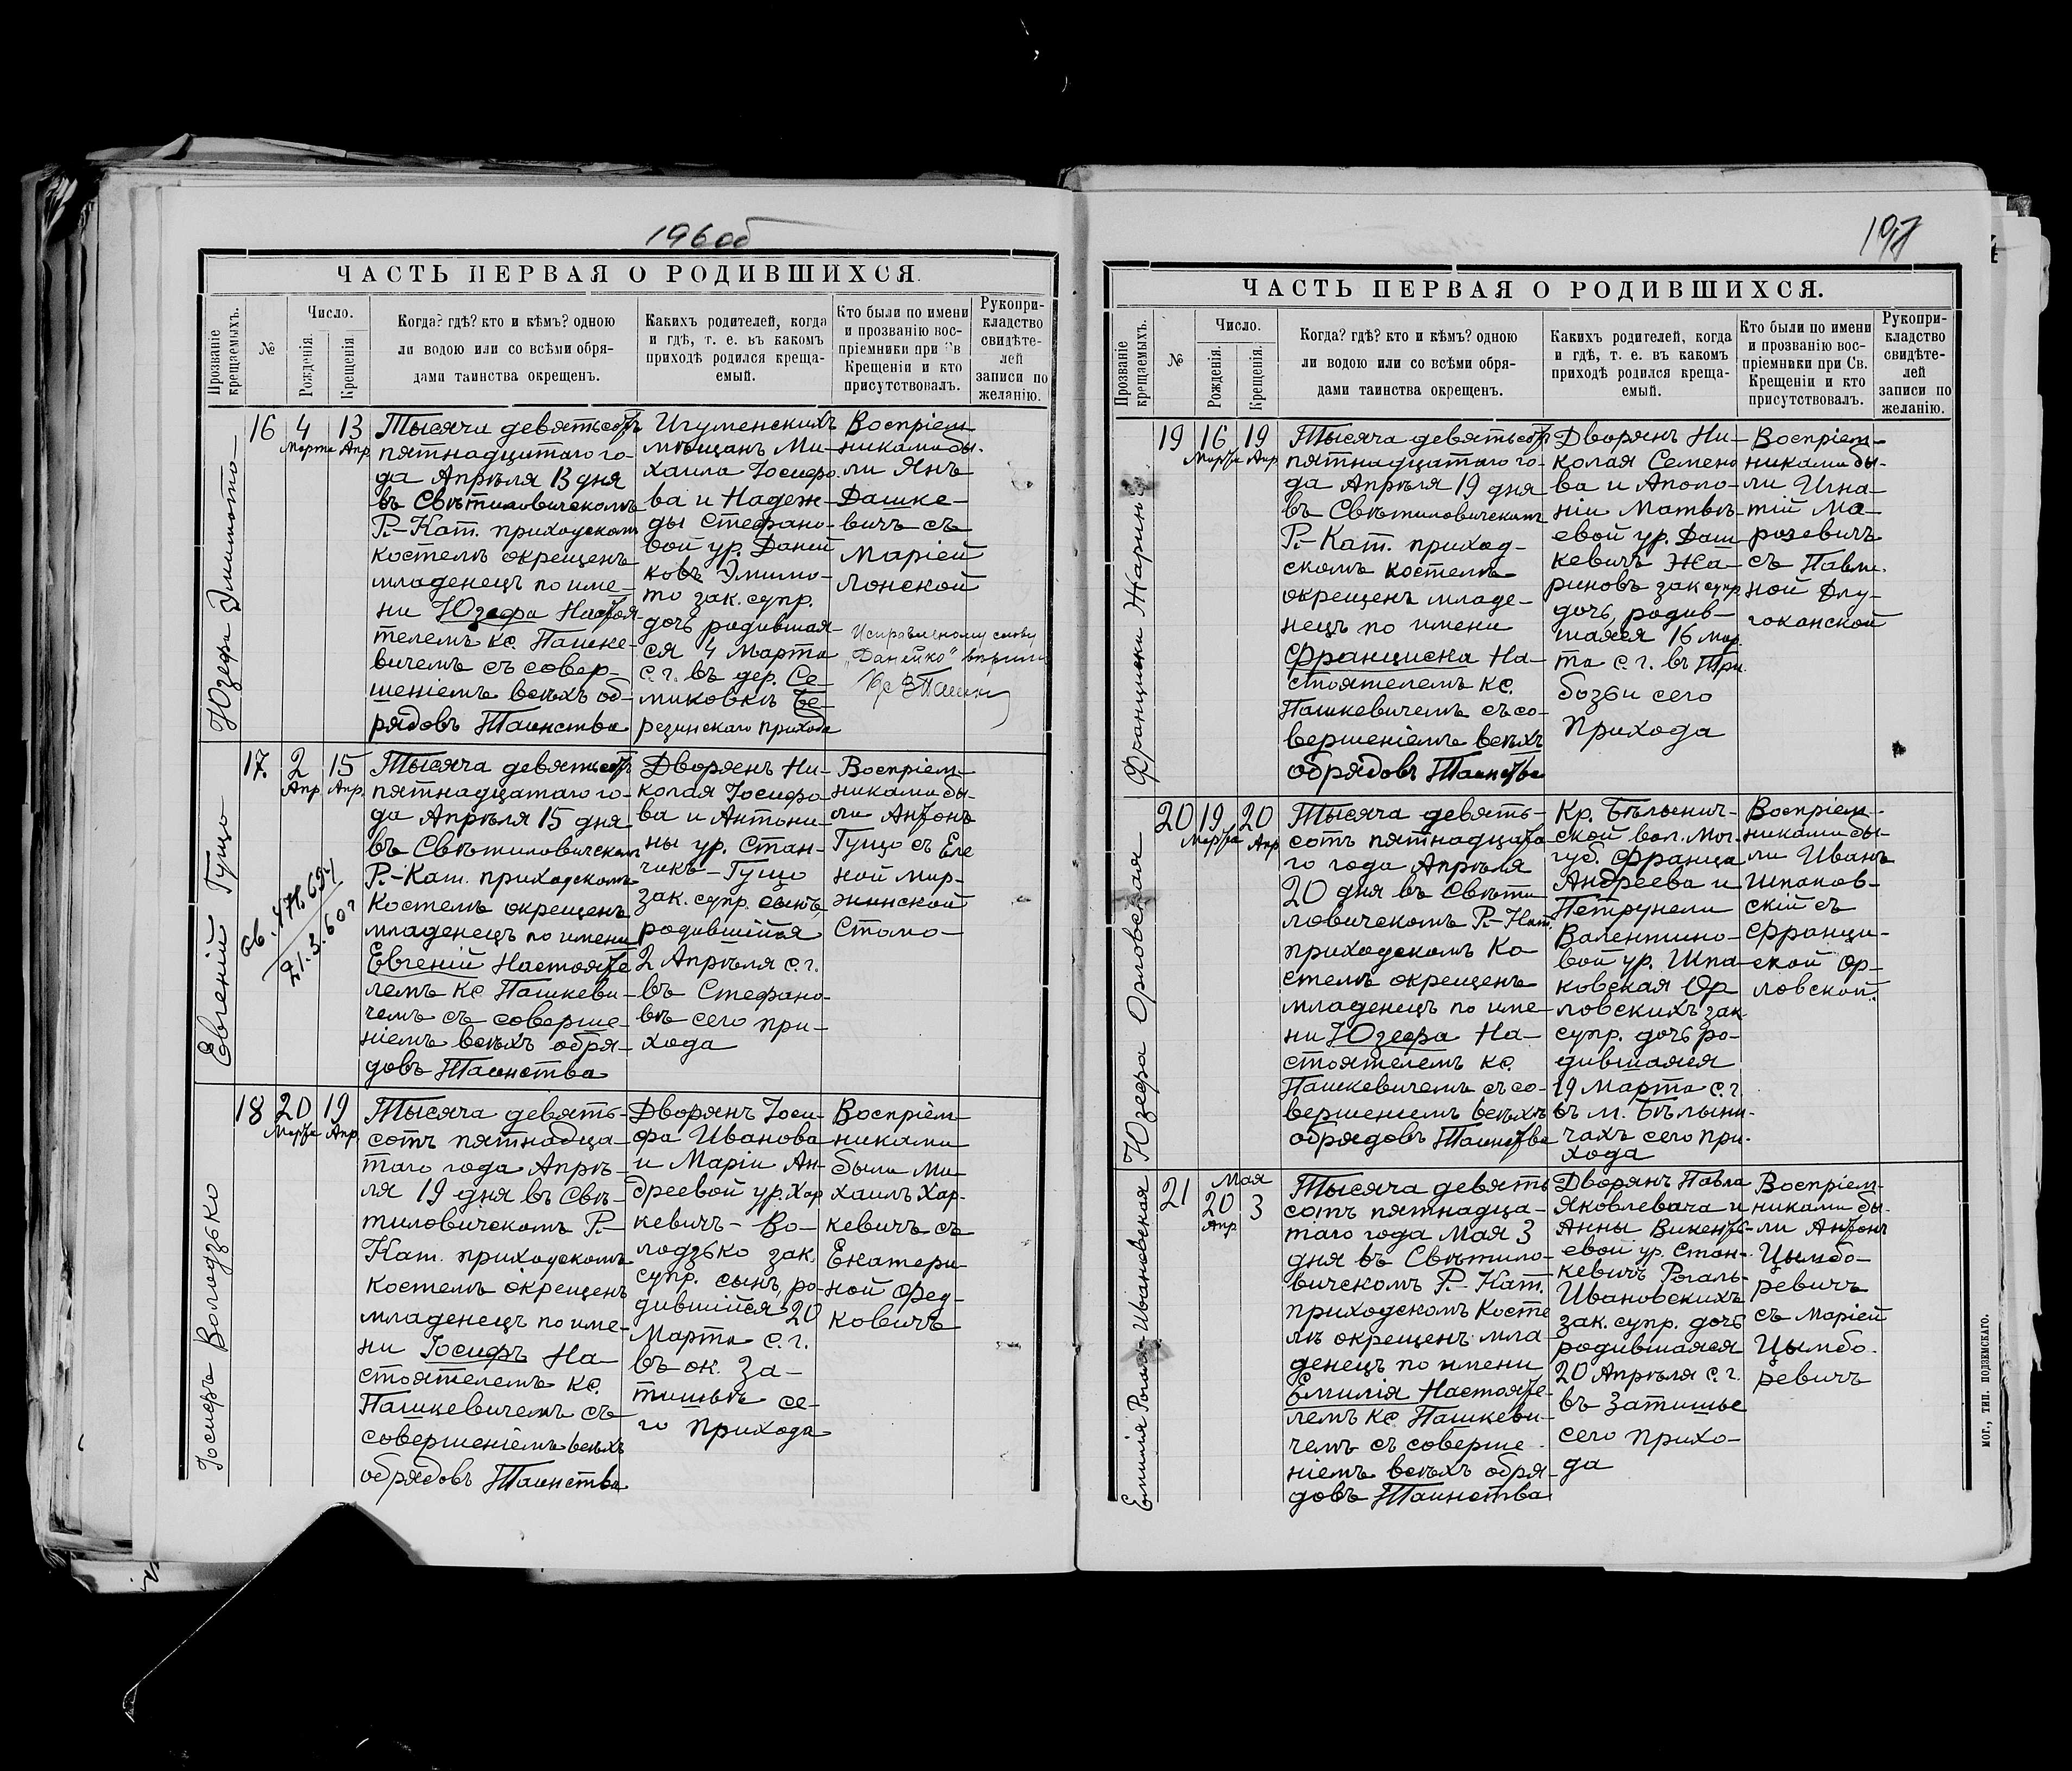 196об
ЧАСТЬ ПЕРВАЯ О РОДИВШИХСЯ.
Прозваніе крещаемыхъ.
№
Число.
Рожденія.
Крещенія.
Когда? гдѣ? кто и кѣмъ? одною
ли водою или со всѣми обря-
дами таинства окрещенъ.
Какихъ родителей, когда
и гдѣ, т. е. въ какомъ
приходѣ родился креща-
емый.
Кто были по имени
и прозванію вос-
пріемники при Св
Крещеніи и кто
присутствовалъ.
Рукопри-
кладство
свидѣте-
лей
записи по
желанію.
Юзефа Эмимото
16
4
Марта
13
Апр
Тысяча девятьсотъ
пятнадцатаго го-
да Апрѣля 13 дня
въ Свѣтиловичскомъ
Р.-Кат. приходскомъ
костелѣ окрещенъ
младенецъ по име-
ни Юзефа Настоя-
телемъ кс. Пашке-
вичемъ съ совер-
шеніемъ всѣхъ об-
рядовъ Таинства
Игуменскихъ
мѣщанъ Ми-
хаила Іосифо-
ва и Надеж-
ды Стефано-
вой ур. Даней
ковъ Эмимо-
то зак. супр.
дочь родившая-
ся 4 Марта
с.г. въ дер. Се-
миковкѣ Бе-
резинскаго прихода
Воспріем-
никами бы-
ли Янъ
Дашке-
вичъ съ
Маріей
Лонской
Исправленному слову
„Данейко" вѣрить
Евгеній Гущо
17.
2
Апр
15
Апр.
21.3.60г
Тысяча девятьсотъ
пятнадцатаго го-
да Апрѣля 15 дня
въ Свѣтиловичском
Р.-Кат. приходскомъ
Костелѣ окрещенъ
младенецъ по имени
Евгеній Настояте
лемъ кс Пашкеви-
чемъ съ соверше-
ніемъ всѣхъ обря-
довъ Таинства
Дворянъ Ни-
колая Іосифо-
ва и Антони-
ны ур. Стан-
чикъ-Гущо
зак. супр. сынъ,
родившійся
2 Апрѣля с.г.
въ Стефано-
вѣ сего при-
хода
Воспріем-
никами бы-
ли Антонъ
Гущо съ Еле
ной Мир-
жинской
Стомо-
Іосифъ Володзько
18
20
Марта
19
Апр.
Тысяча девять-
сотъ пятнадца-
таго года Апрѣ-
ля 19 дня въ Свѣ-
тиловичскомъ Р.-
Кат. приходскомъ
костелѣ окрещенъ
младенецъ по име-
ни Іосифъ На-
стоятелемъ кс.
Пашкевичемъ съ
совершеніемъ всѣхъ
обрядовъ Таинства
Дворянъ Іоси-
фа Иванова
и Маріи Ан-
дреевой ур. Хар
кевичъ-Во-
лодзько зак.
супр. сынъ, ро-
дившійся 20
Марта с.г.
въ ок. За-
тишьѣ се-
го прихода
Воспріем-
никами
были Ми-
хаилъ Хар-
кевичъ съ
Екатери
ной Фед-
ковичъ
197
ЧАСТЬ ПЕРВАЯ О РОДИВШИХСЯ.
Прозваніе крещаемыхъ.
№
Число.
Рожденія.
Крещенія.
Когда? гдѣ? кто и кѣмъ? одною
ли водою или со всѣми обря-
дами таинства окрещенъ.
Какихъ родителей, когда
и гдѣ, т. е. въ какомъ
приходѣ родился креща-
емый.
Кто были по имени
и прозванію вос-
пріемники при Св.
Крещеніи и кто
присутствовалъ.
Рукопри-
кладство
свидѣте-
лей
записи по
желанію.
Франциска Жарин
19
16
Марта
19
Апр
Тысяча девятьсотъ
пятнадцатаго го-
да Апрѣля 19 дня
въ Свѣтиловичскомъ
Р.-Кат. приход-
скомъ костелѣ
окрещенъ младе-
нецъ по имени
Франциска На-
стоятелемъ кс.
Пашкевичемъ съ со-
вершеніемъ всѣхъ
обрядовъ Таинства
Дворянъ Ни-
колая Семено
ва и Аполо-
ніи Матвѣ-
евой ур. Даш
кевичъ Жа-
риновъ зак супр
дочь, родив-
шаяся 16 мар
та с.г. въ При
бозьи сего
прихода
Воспріем-
никами бы-
ли Игна-
тій Ма-
розевичъ
съ Павли-
ной Длу-
гоканской
Юзефа Орловская
20
19
Марта
20
Апр
Тысяча девять-
сотъ пятнадцата
го года Апрѣля
20 дня въ Свѣти
ловичскомъ Р.-Кат.
приходскомъ Ко
стелѣ окрещенъ
младенецъ по име-
ни Юзефа На-
стоятелемъ кс.
Пашкевичемъ съ со-
вершеніемъ всѣхъ
обрядовъ Таинства
Кр. Бѣлынич-
ской вол. Мог.
губ. Франца
Андреева и
Петрунели
Валентино-
вой ур. Шпа-
ковская Ор
ловскихъ зак
супр. дочь ро-
дившаяся
19 Марта с.г.
въ м. Бѣлыни-
чахъ сего при-
хода
Воспріем-
никами бы-
ли Иванъ
Шпаков-
скій съ
Франци-
ской Ор-
ловской.
Емилія Рогаль-Ивановская
21
20
Апр
Мая
3
Тысяча девять
сотъ пятнадца-
таго года Мая 3
дня въ Свѣтило-
вичскомъ Р.-Кат.
приходскомъ Косте
лѣ окрещенъ мла-
денецъ по имени
Емилія Настояте-
лемъ кс Пашкеви-
чемъ съ соверше-
ніемъ всѣхъ обря-
довъ Таинства
Дворянъ Павла
Яковлевича и
Анны Викентье-
евой ур. Стан-
кевичъ Рогаль-
Ивановскихъ
зак. супр. дочь
родившаяся
20 Апрѣля с.г.
въ Затишье
сего прихо-
да
Воспріем-
никами бы-
ли Антонъ
Цымбо-
ревичъ
съ Маріей
Цымбо-
ревичъ
МОГ., ТИП. ПОДЗЕМСКАГО.